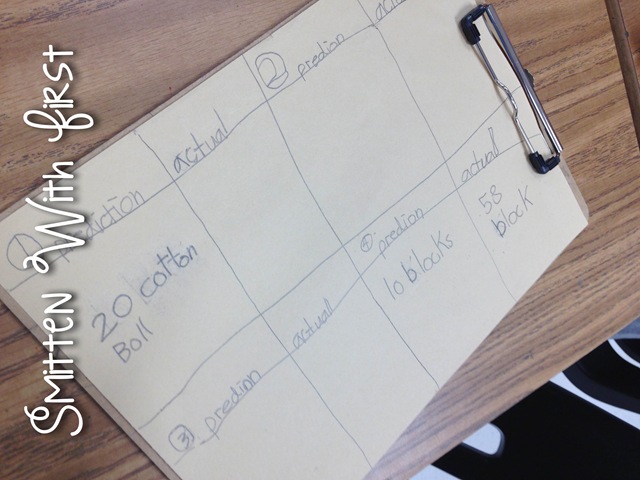 Smitten With First
① prediction actual
20 cotton
Boll
② predion actu
③ predion actual
④ predion actual
10 blocks
58
block